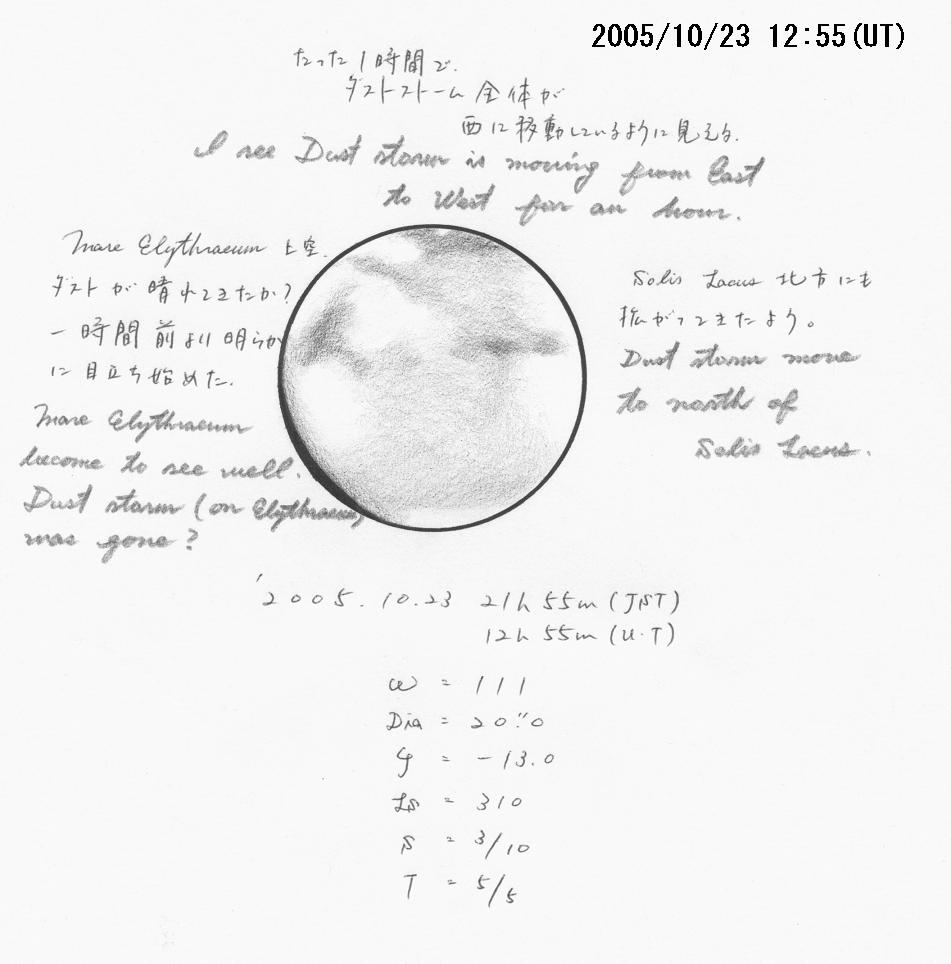 2005/10/23 12:55(UT)
たった1時間で、
ダストストーム全体が
西に移動しているように見える.
I see Dust storm is moving from East
to West for an hour.
Mare Elythraeum 上空.
ダストが晴れてきたか?
一時間前より明らか
に目立ち始めた.
Mare Elythraeum
become to see well.
Dust storm (on Elythraeum)
was gone?
Solis Lacus 北方にも
拡がってきたよう。
Dust storm move
to north of
Solis Lacus.
'2005.10.23 21h 55m (JST)
12h 55m (U.T)
ω = 111
Dia = 20".0
φ = -13.0
Ls = 310
S = 3/10
T = 5/5